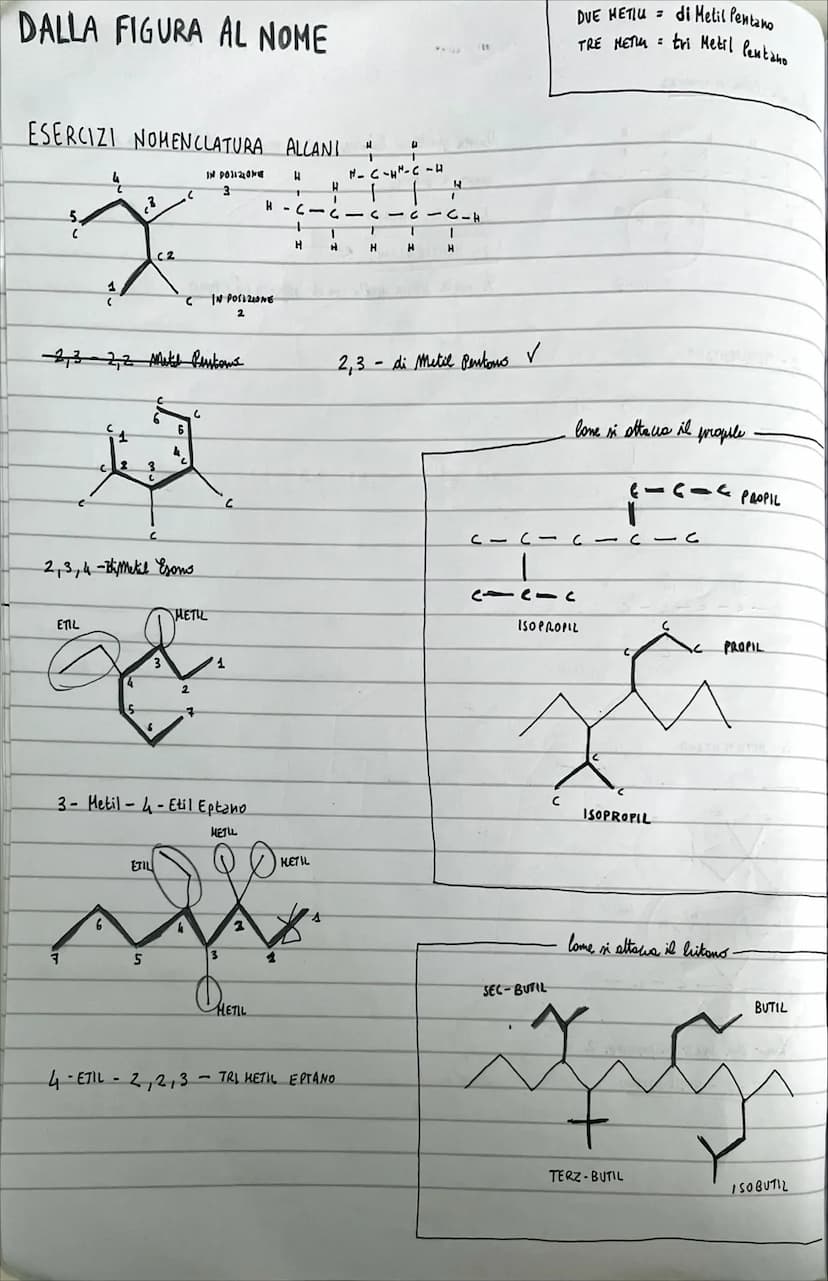 DALLA FIGURA AL NOME
DUE METILI = di Metil Pentano
TRE METILI = tri Metil Pentano
ESERCIZI NOMENCLATURA ALCANI
4
C
IN POSIZIONE
3
C
3
C
5
C
C 2
1
C
C
IN POSIZIONE
2
H H
H H - C - H H - C - H
H H
H - C - C - C - C - C - H
H H H H H
2,3 - 2,2 Metil Pentano
2,3 - di Metil Pentano ✓
C
6 C
C 5
1
4
C 2 3 C
C
C C
C
2,3,4 - Metil Esano
Come si attacca il propile
C - C - C PROPIL
C - C - C - C - C
C - C - C
ISOPROPIL
ETIL
METIL
3 1
4 2
5 7
6
C
C C PROPIL
C
C C
ISOPROPIL
3 - Metil - 4 - Etil Eptano
METIL
ETIL METIL
6 4 2 1
7 5 3
METIL
4 - ETIL - 2,2,3 - TRI METIL EPTANO
Come si attacca il butano
SEC-BUTIL
BUTIL
TERZ-BUTIL
ISOBUTIL